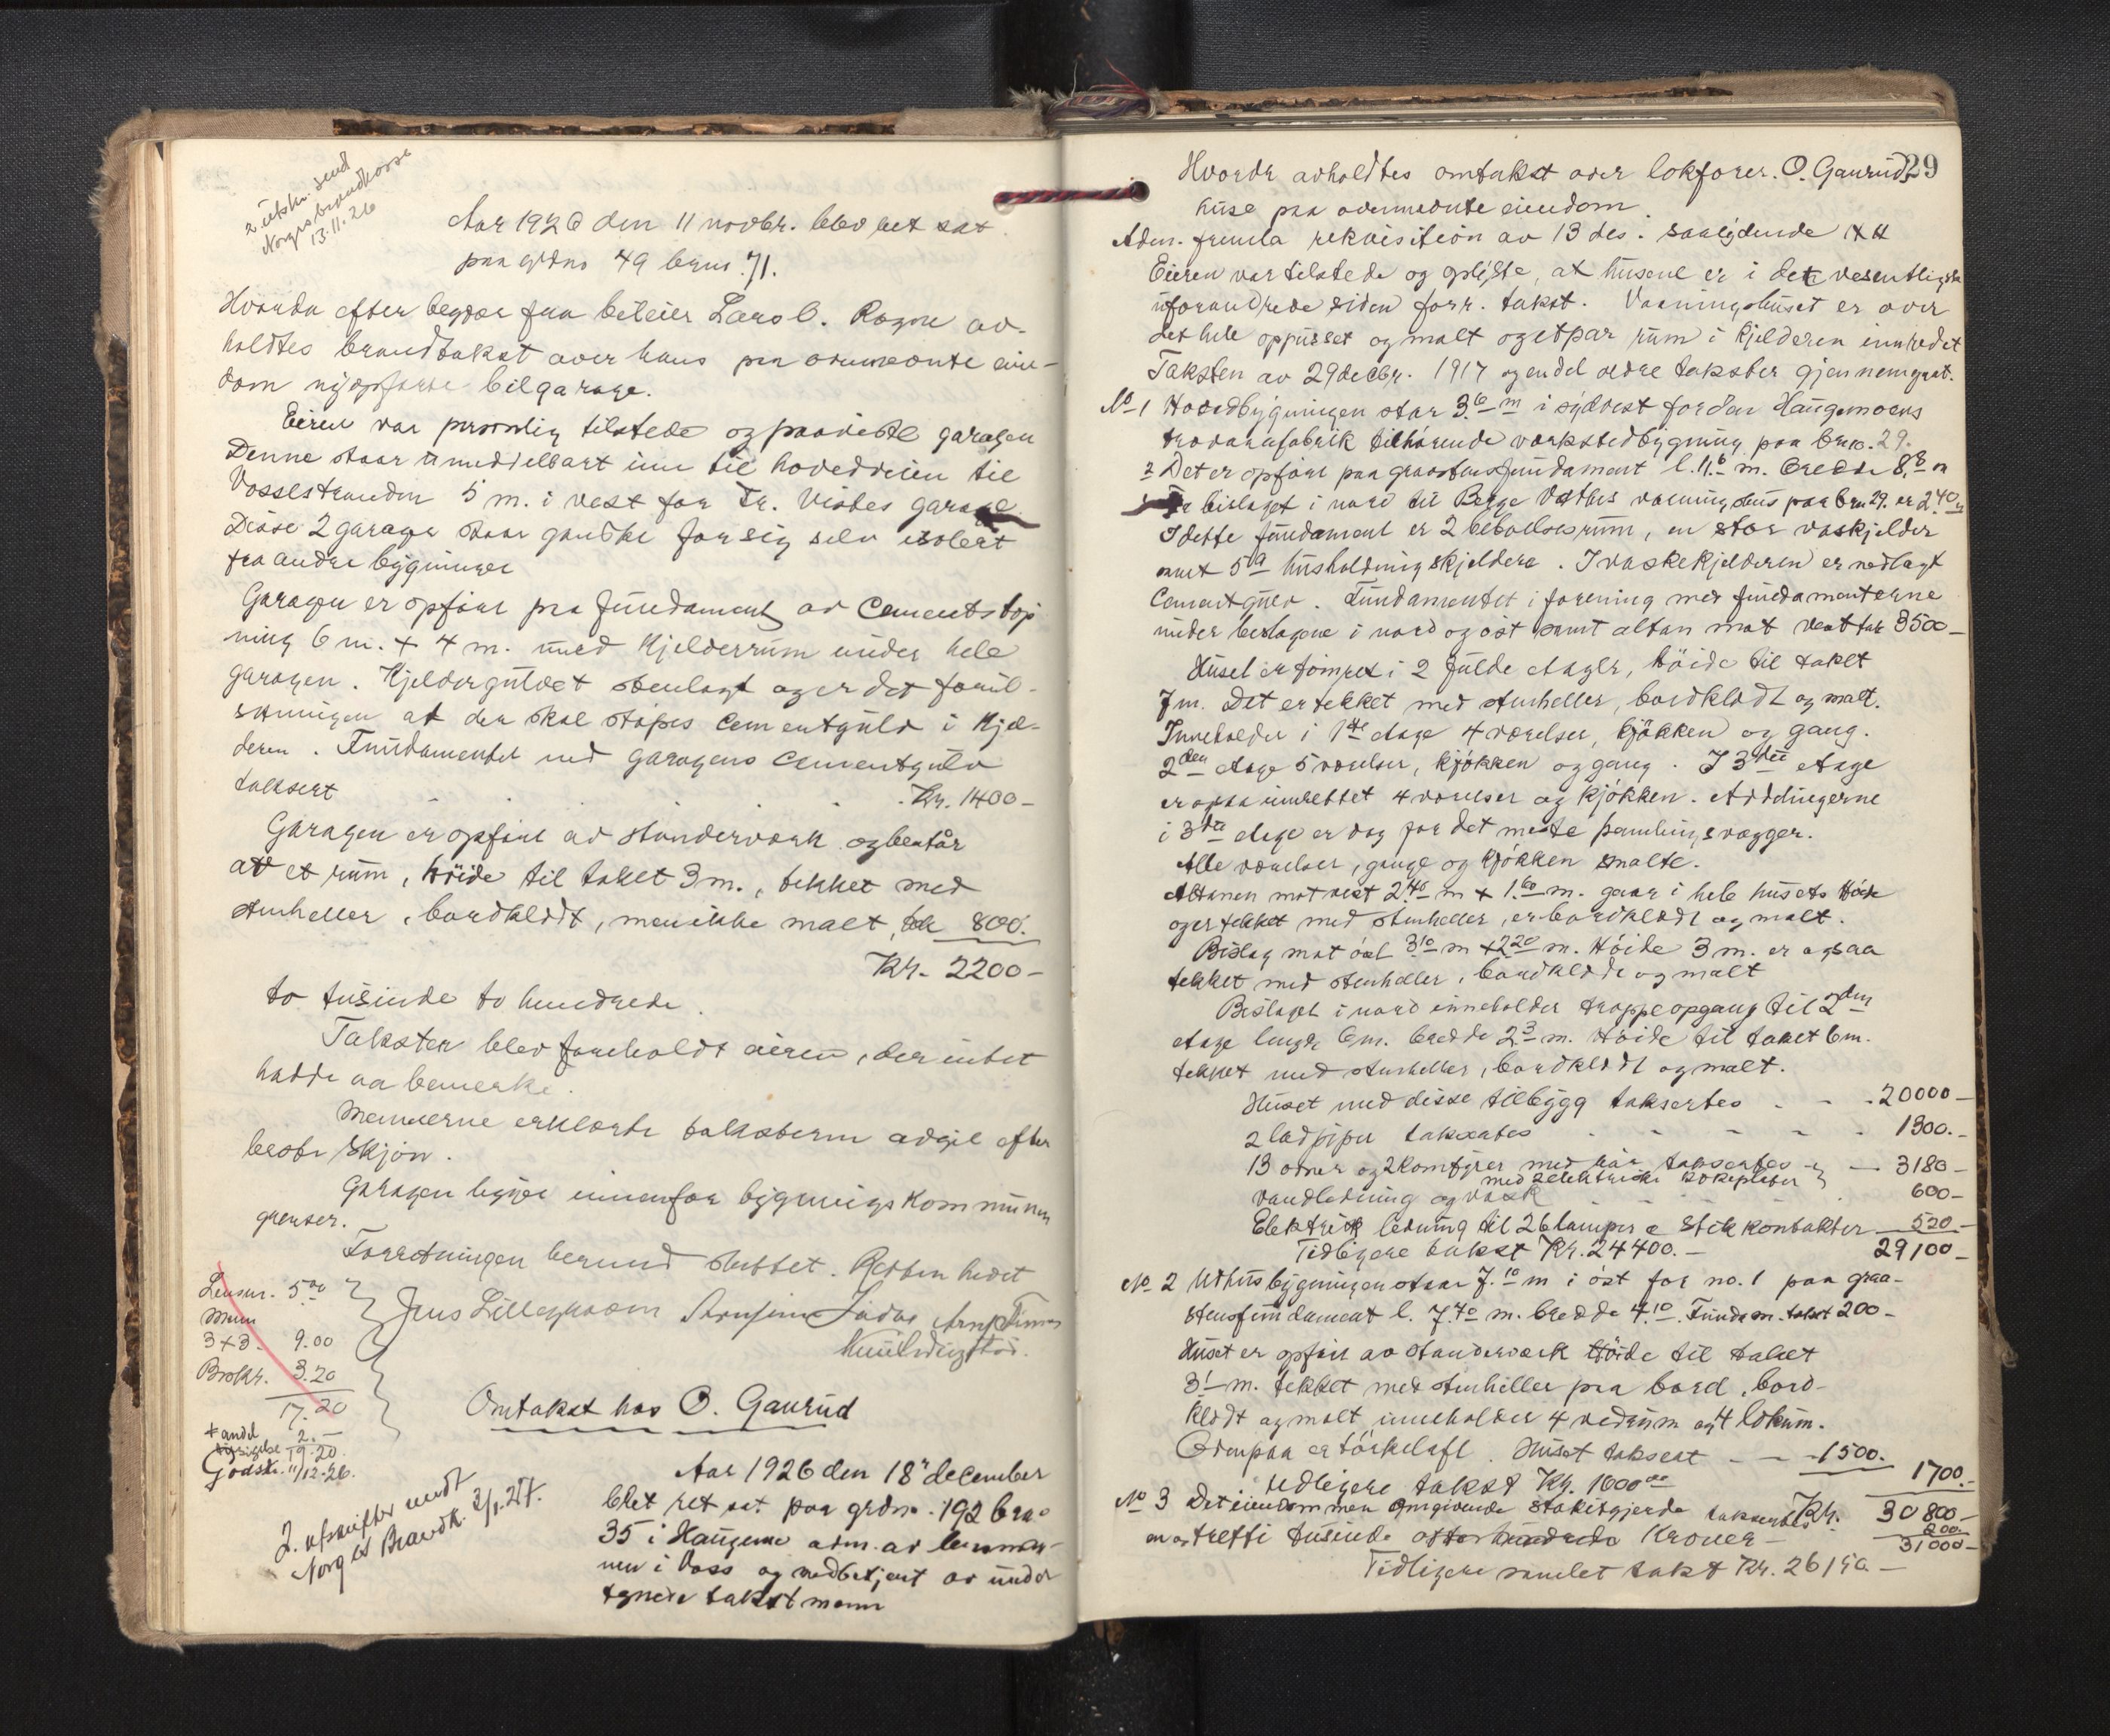 2. utskr. send
Norges brandkasse
13.11.26
Aar 1926 den 11 novbr. blev ret sat
paa grdno 49 brno. 71.
Hvorda efter begjær fra bileier Lars O. Rogne av-
holdtes brandtakst over hans paa ovennævnte eien-
dom nyopførte bilgarage.
Eieren var personlig tilstede og paaviste garagen
Denne staar umiddelbart inn til hovedveien til
Vossestranden 5 m. i vest for Tr. Vistes garage
Disse 2 garager staar ganske for sig selv isolert
fra andre bygninger
Garagen er opført paa fundament av Cementstøp
ning 6 m. + 4 m. med Kjelderrum under hele
garagen. Kjeldergulvet stenlagt og er det forut-
setningen at der skal støpes cementgulv i Kjel-
deren. Fundamentet med garagens cementgulv
taksert . . . Kr. 1400 -
Garagen er opført av stenderverk og består
av et rum, høide til taket 3 m., tekket med
stenheller, bordklædt, men ikke malt, tak 800.
Kr. 2200 -
to tusinde to hundrede.
Taksten blev foreholdt eieren, der intet
hadde aa bemerke.
Mennerne erklærte taksterne avgit efter
beste skjøn.
Garagen ligger innenfor bygningskommunens
grenser.
Forretningen dermed sluttet. Retten hevet
Lensm. 5.00
Menn
3+3. 9.00
Brokr. 3.20
17.20
+ andel
2. -
19.20.
Godskr. 11/12-26.
Jens Lillegraven
Omtakst hos O. Gaurud
Aar 1926 den 18' december
blet ret sat paa grdno. 192 brno
35 i Haugene adm. av lensman-
nen i Voss og medbetjent av under
tegnede takstmenn
2. utskrifter sendt
Norges Brandk. 3/1.27.
29
Hvorda avholdtes omtakst over lokfører. O. Gauruds
huse paa ovennevnte eiendom.
Adm. fremla rekvisition av 13 des. saalydende
Eieren var tilstede og oplyste, at husene er i det vesentligste
uforandrede siden forr. takst. Vaaningshuset er over
det hele oppusset og malt og et par rum i kjelderen innredet
Taksten av 29 decbr. 1917 og en del eldre takster gjennemgaat.
No 1 Hovedbygningen star 3.6 m i sydvest for den Haugemoens
trevarefabrik tilhørende verkstedbygning paa brno. 29.
2 Det er opført paa graastensfundament l. 11.6 m. bredde 8.8 m
bislaget i nord til Berge Væthes vaaningshus paa brn 29. er 2.40 m
I dette fundament er 2 beboelsesrum, en stor vaskjelder
samt 5 a husholdningskjeldere. I vaskekjelderen er nedlagt
Cementgulv. Fundamentet i forening med fundamenterne
under beslagene i nord og øst samt altan mot vest tak 3500 -
Huset er tømret i 2 fulde etager, høide til taket
7 m. Det er tekket med stenheller, bordklædt og malt.
Inneholder i 1ste etage 4 værelser, kjøkken og gang.
2den etage 5 værelser, kjøkken og gang. I 3die etage
er ogsaa innrettet 4 værelser og kjøkken. Avdelingerne
i 3die etage er dog for det meste panelingsvægger.
Alle værelser, gange og kjøkken malte.
Altanen mot vest 2.40 m + 1.60 m. gaar i hele husets høide
og er tekket med stenheller, er bordklædt og malt.
Bislag mot øst 3.10 m + 2.20 m. Høide 3 m. er ogsaa
tekket med stenheller, bordklædt og malt
Bislaget i nord inneholder trappeopgang til 2den
etage lengde 6 m. bredde 2.3 m. Høide til taket 6 m.
tekket med stenheller, bordklædt og malt.
Huset med disse tilbygg taksertes - - - 20000 -
2 ladpiper taksertes - - - - - 1300. -
13 ovner og 2 komfyrer med rør taksertes - 3180 -
med 2 elektriske kokeplater
vandledning og vask . . . 600 -
Elektrisk ledning til 26 lamper a stikkontakter 520 -
Tidligere takst Kr. 24400. - 29100 -
No 2 Uthusbygningen staar 7.10 m i øst for no. 1 paa graa-
stensfundament l. 7.40 m. bredde 4.10. Fundam. takst 200 -
Huset er opført av stenderverk Høide til taket
3.1 m. tekket med stenheller paa bord, bord-
klædt og malt inneholder 4 vedrum og 4 lokum.
Ovenpaa er tørkeloft. Huset taksert - - - 1500. 1700. -
Tidligere takst Kr. 1600.00
No 3 Det eiendommen omgivende stakitgjerde taksertes Kr. 30800 -
200.
en og tretti tusinde otte hundrede Kroner - 31000 -
Tidligere samlet takst Kr. 26150. -